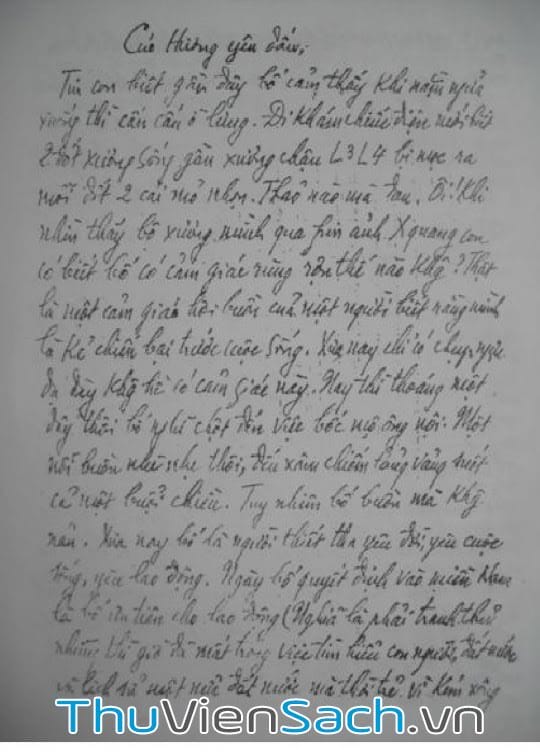 Cúc Hương yêu dấu,
Tin con biết gần đây bố cảm thấy khi nằm ngửa
xuống thì cấn cấn ở lưng. Đi khám chiếu điện mới biết
2 đốt xương sống gần xương chậu L3 L4 bị mọc ra
mỗi đốt 2 cái mỏ nhọn. Thảo nào mà đau. Ôi! Khi
nhìn thấy bộ xương mình qua phim ảnh X quang con
có biết bố có cảm giác rùng rợn thế nào Khg? Thật
là một cảm giác hơi buồn của một người biết rằng mình
là kẻ chiến bại trước cuộc sống. Xưa nay chỉ có
Khg hề có cảm giác này. Nay thi thoảng một
đây thôi bố nghĩ chợt đến việc bốc mộ ông nội. Một
nỗi buồn nhè nhẹ thôi, đến xâm chiếm lảng vảng mất
cả một buổi chiều. Tuy nhiên bố buồn mà Khg
nản. Xưa nay bố là người thiết tha yêu đời, yêu cuộc
sống, yêu lao động. Ngày bố quyết định vào miền Nam
là bố ưu tiên cho lao động (Nghĩa là phải tranh thủ
những thì giờ đã mất trong việc tìm hiểu con người, đất nước
và lịch sử một nửa đất nước mà thời trẻ vì
ThuVienSach.vn